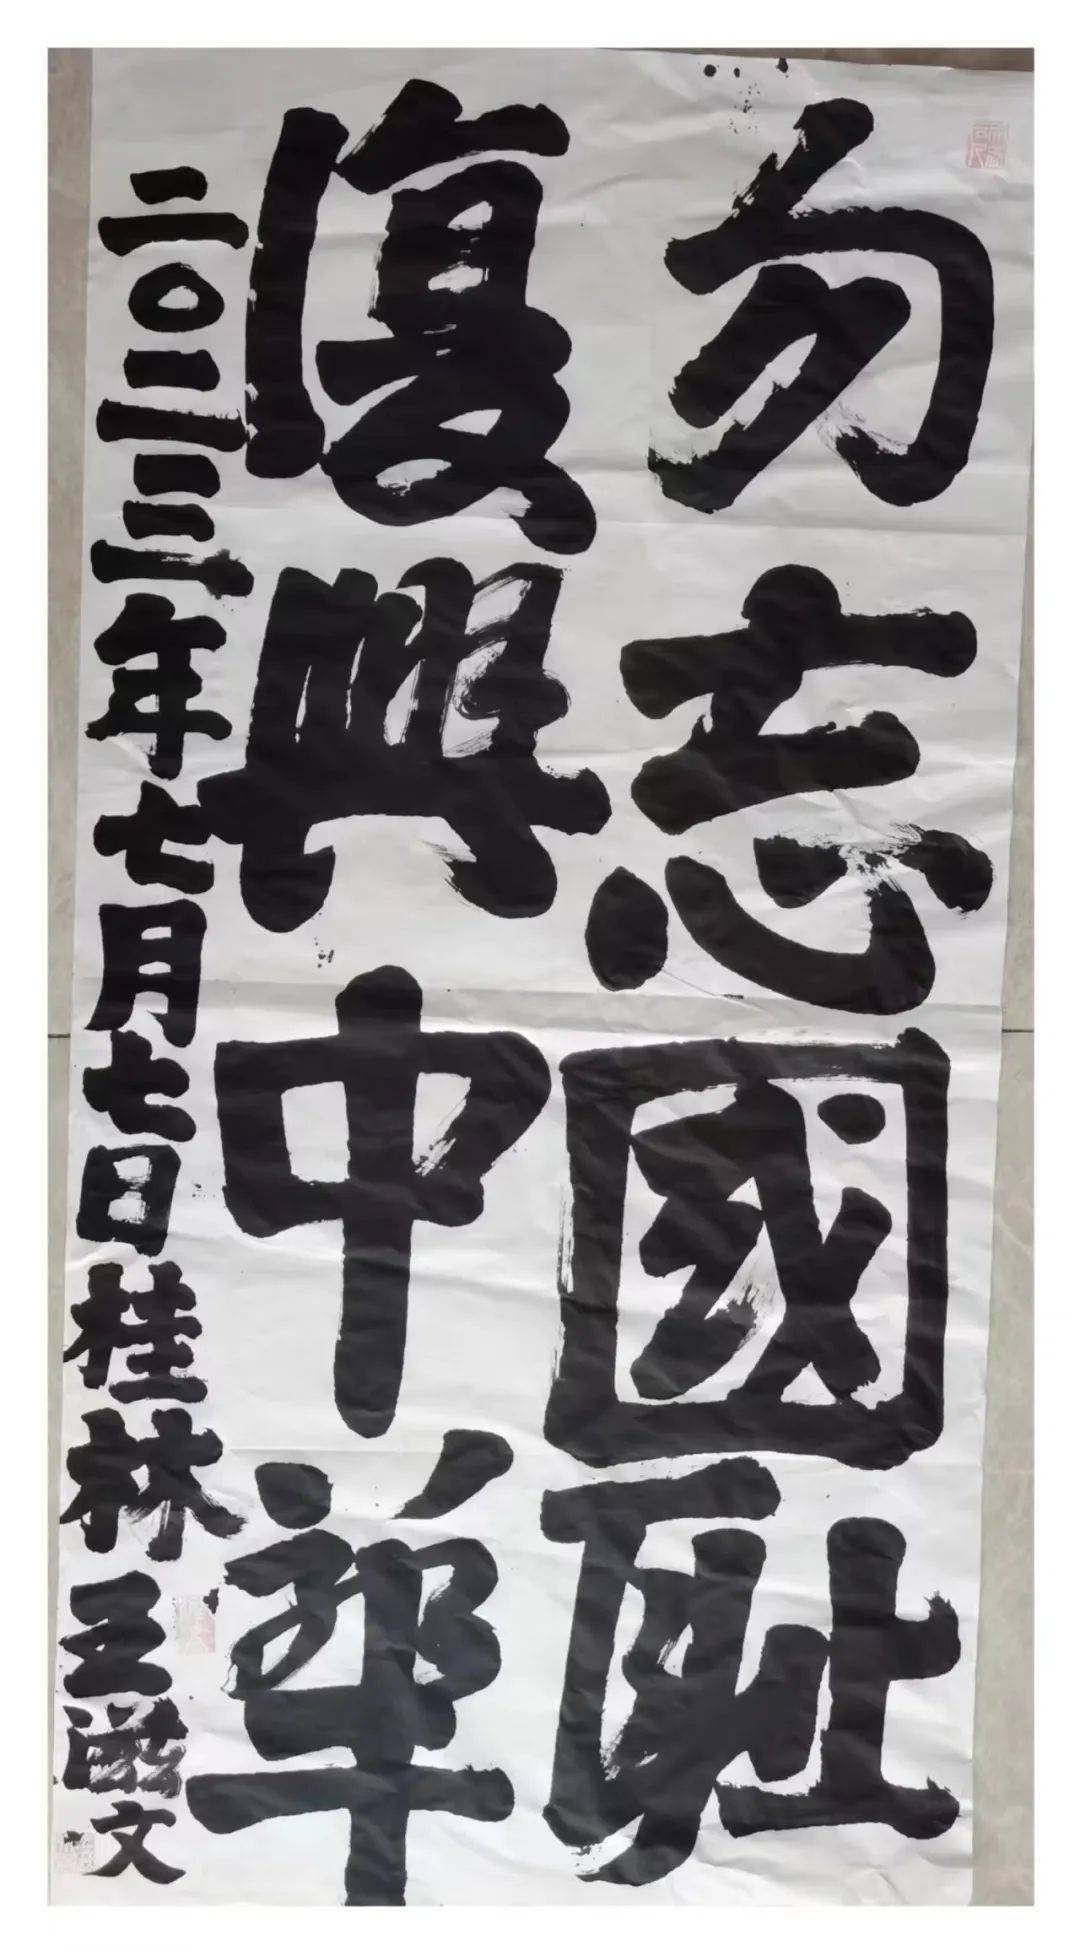 勿忘國耻
復興中華
二〇二三年七月七日桂林王滋文